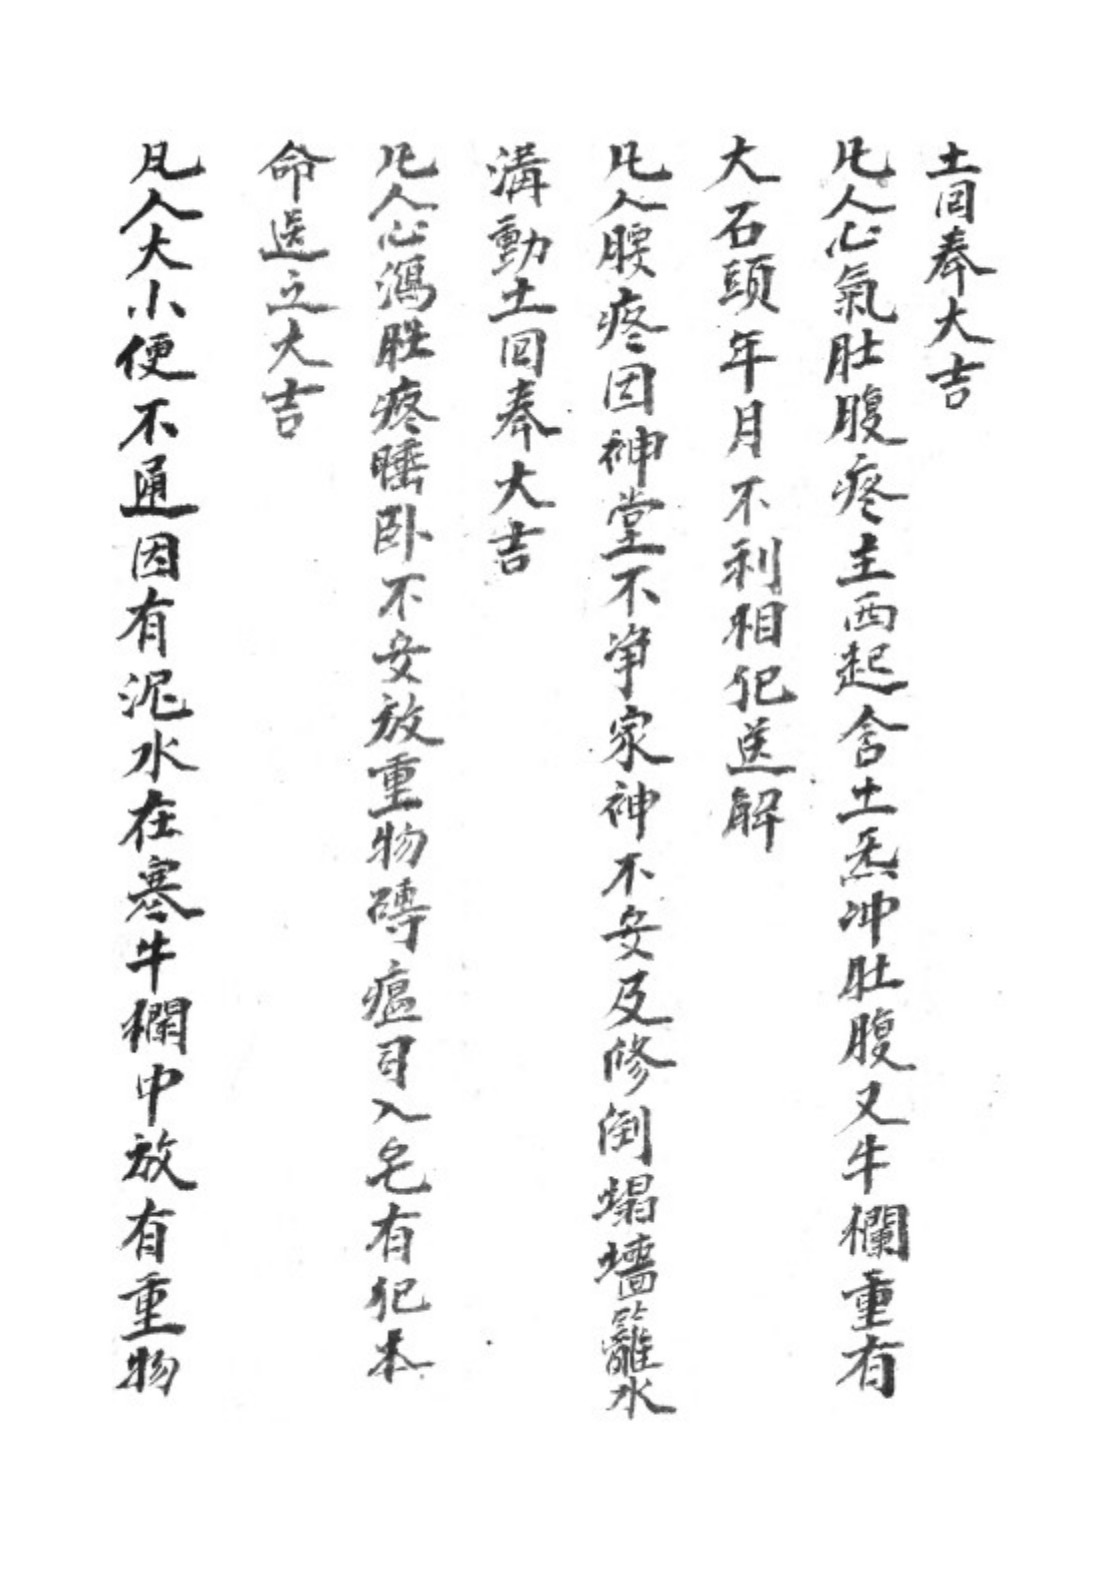 土囙奉大吉
凢人心氣肚腹疼主西起含土炁冲肚腹又牛欄重有
大石頭年月不利相犯送解
凢人腰疼因神堂不净家神不安及修倒塌墻籬水
溝動土囙奉大吉
凢人心瀉胜疼睡卧不安放重物磚瘟司入宅有犯本
命送之大吉
凡人大小便不通因有泥水在寒牛欄中放有重物